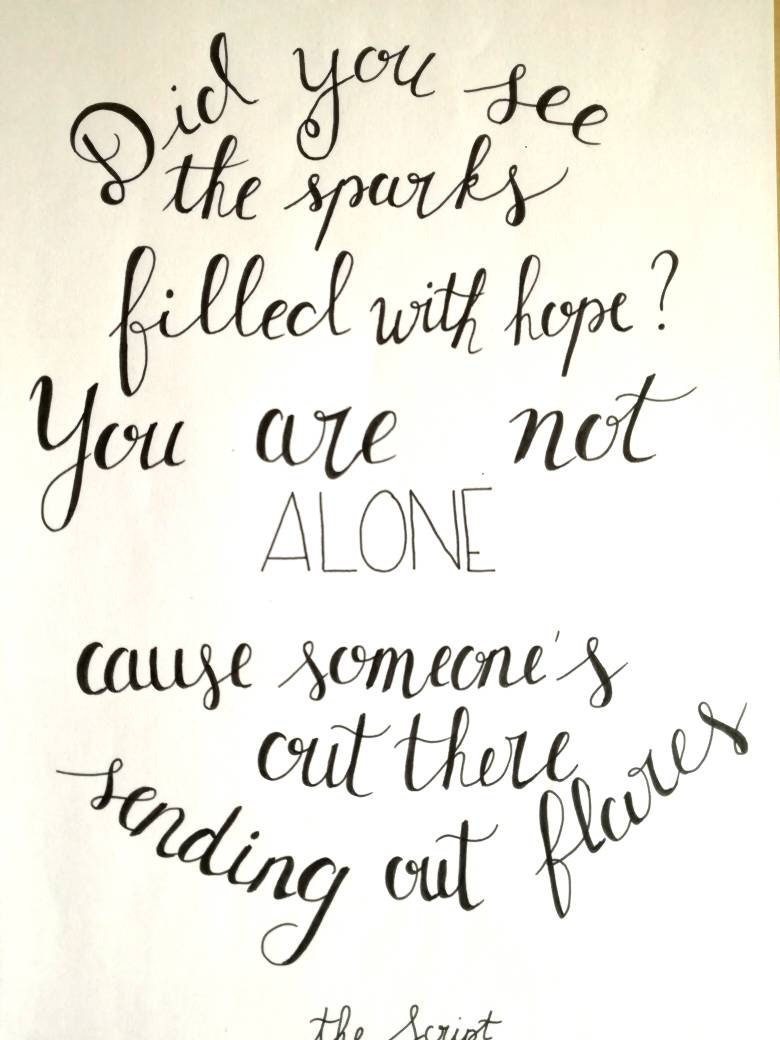 Did you see
the sparks
filled with hope?
You are not
ALONE
cause someone's
out there
sending out flares
the Script